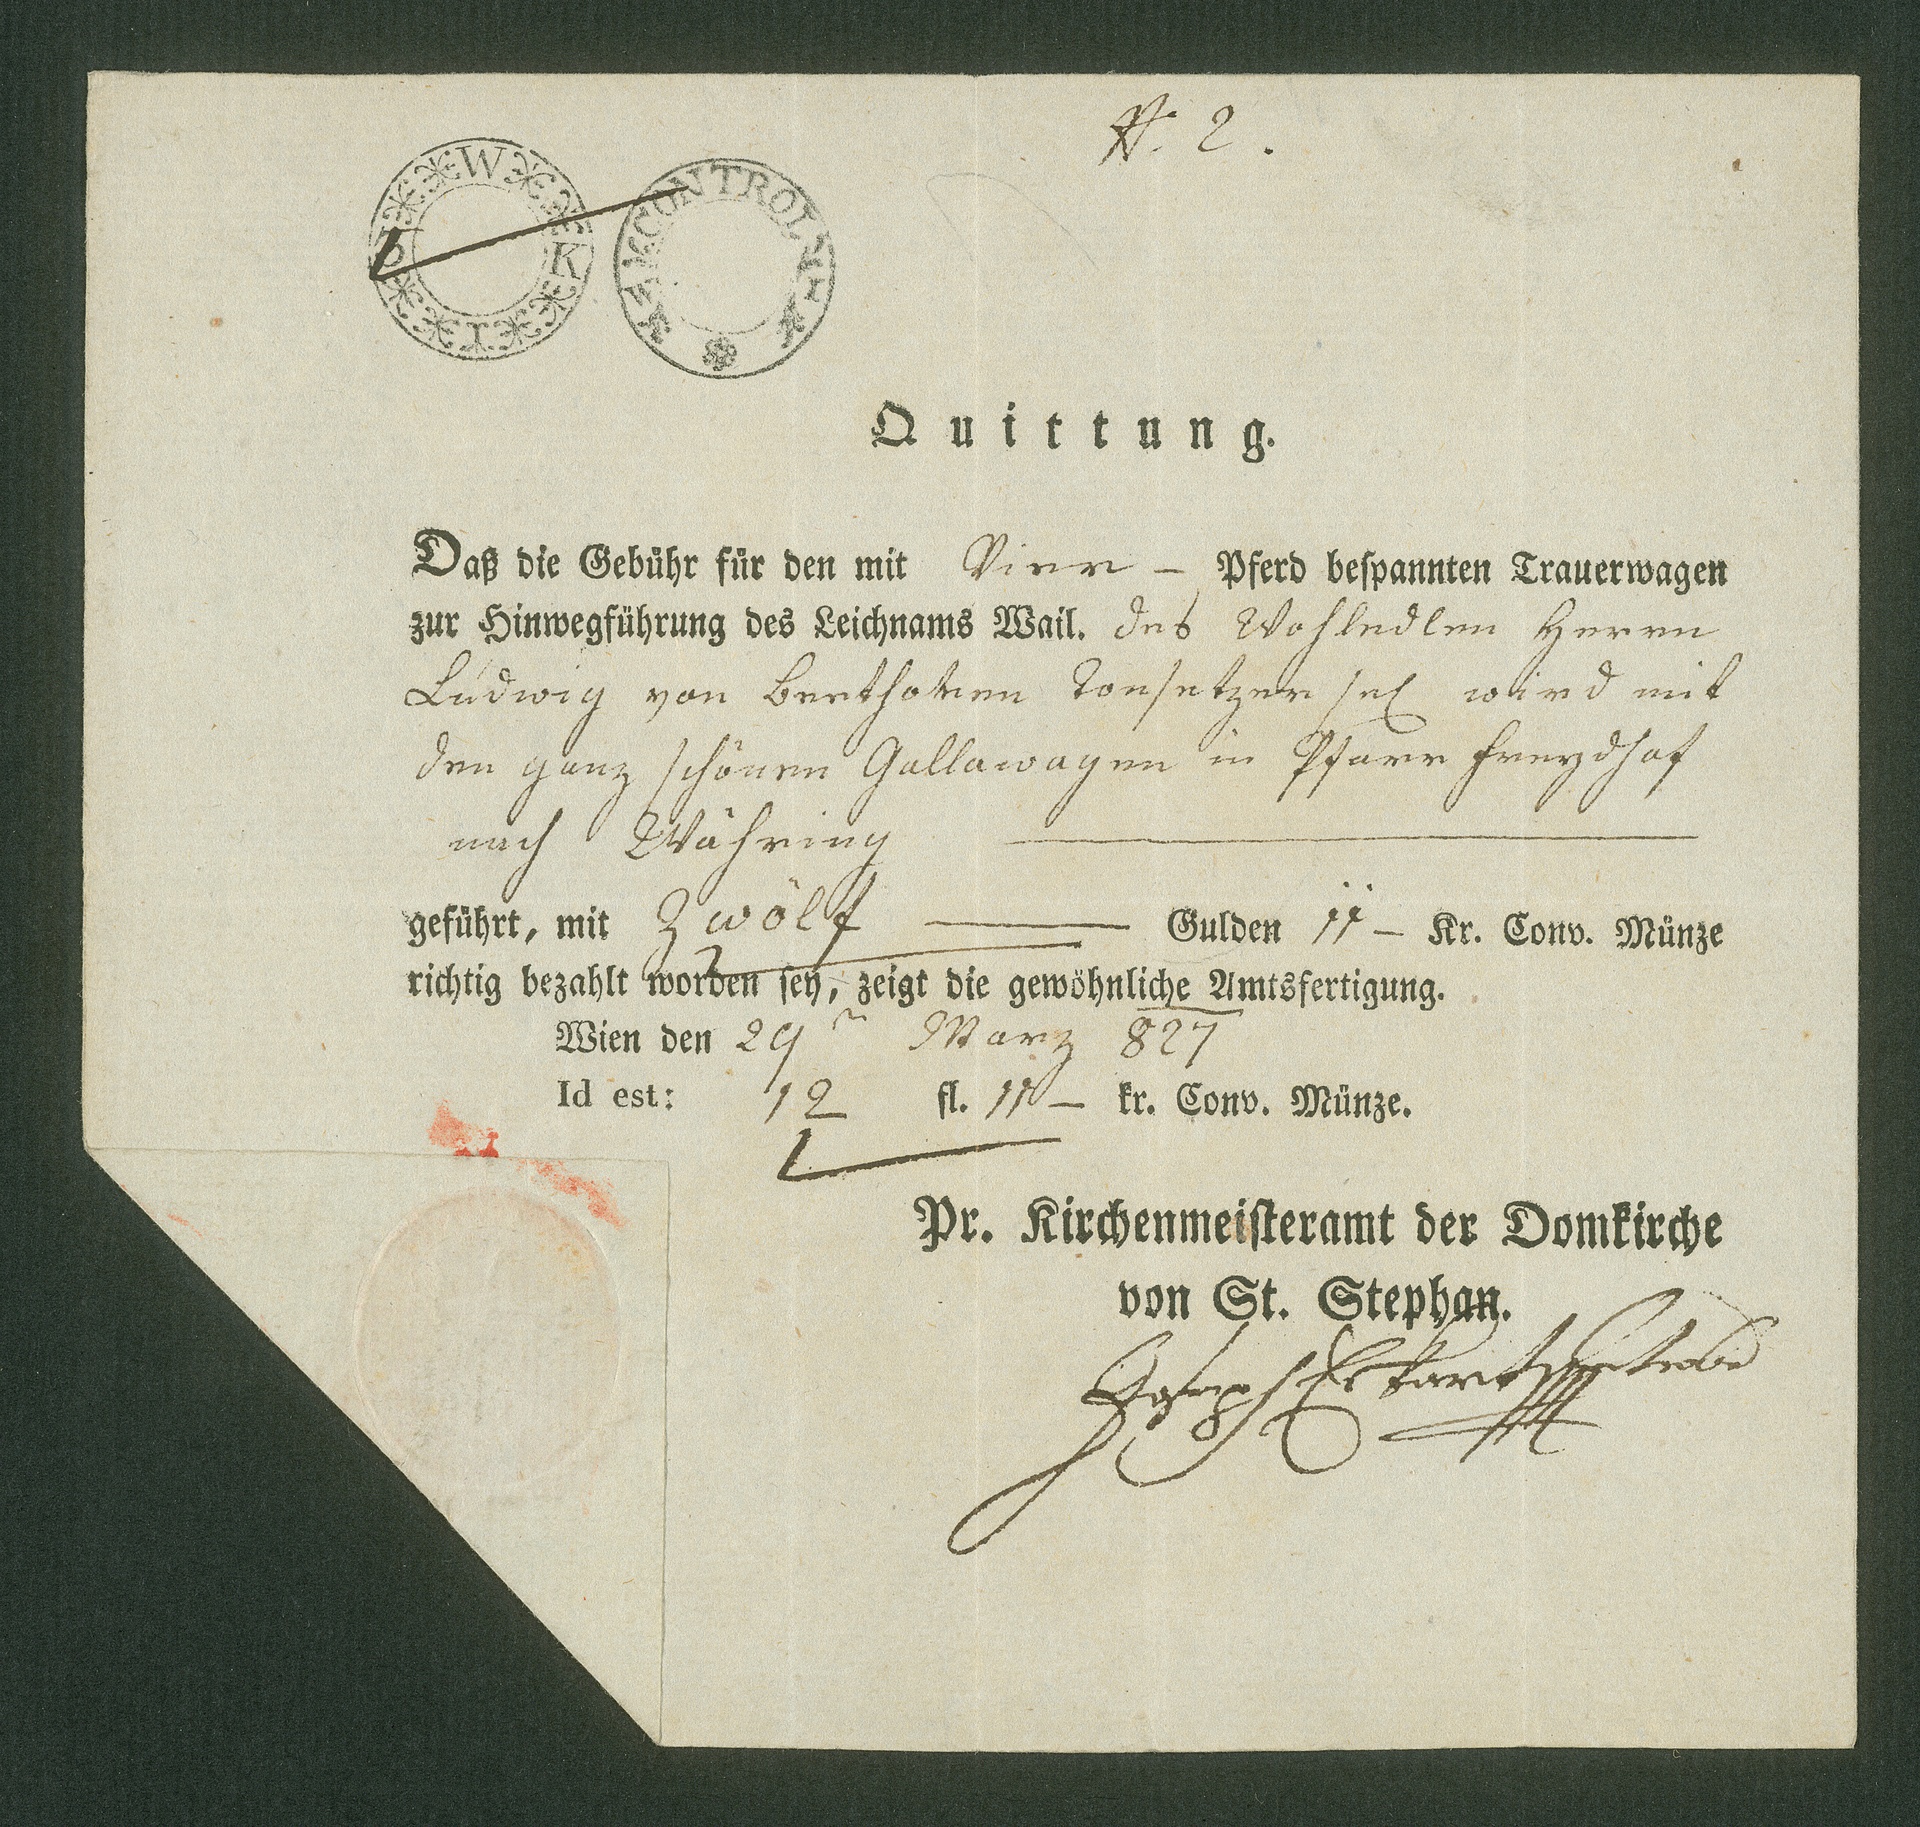 N. 2.
W K I
CONTROLE
Quittung.
Daß die Gebühr für den mit Vier – Pferd bespannten Trauerwagen
zur Hinwegführung des Leichnams Wail. des Wohledlen Herrn
Ludwig von Beethoven Tonsetzer sel wird mit
den ganz schönen Gallawagen in Pfarr Freydhof
nach Währing
geführt, mit Zwölf — Gulden 11 – Kr. Conv. Münze
richtig bezahlt worden sey, zeigt die gewöhnliche Amtsfertigung.
Wien den 29n März 827
Id est: 12 fl. 11 – kr. Conv. Münze.
Pr. Kirchenmeisteramt der Domkirche
von St. Stephan.
Joseph